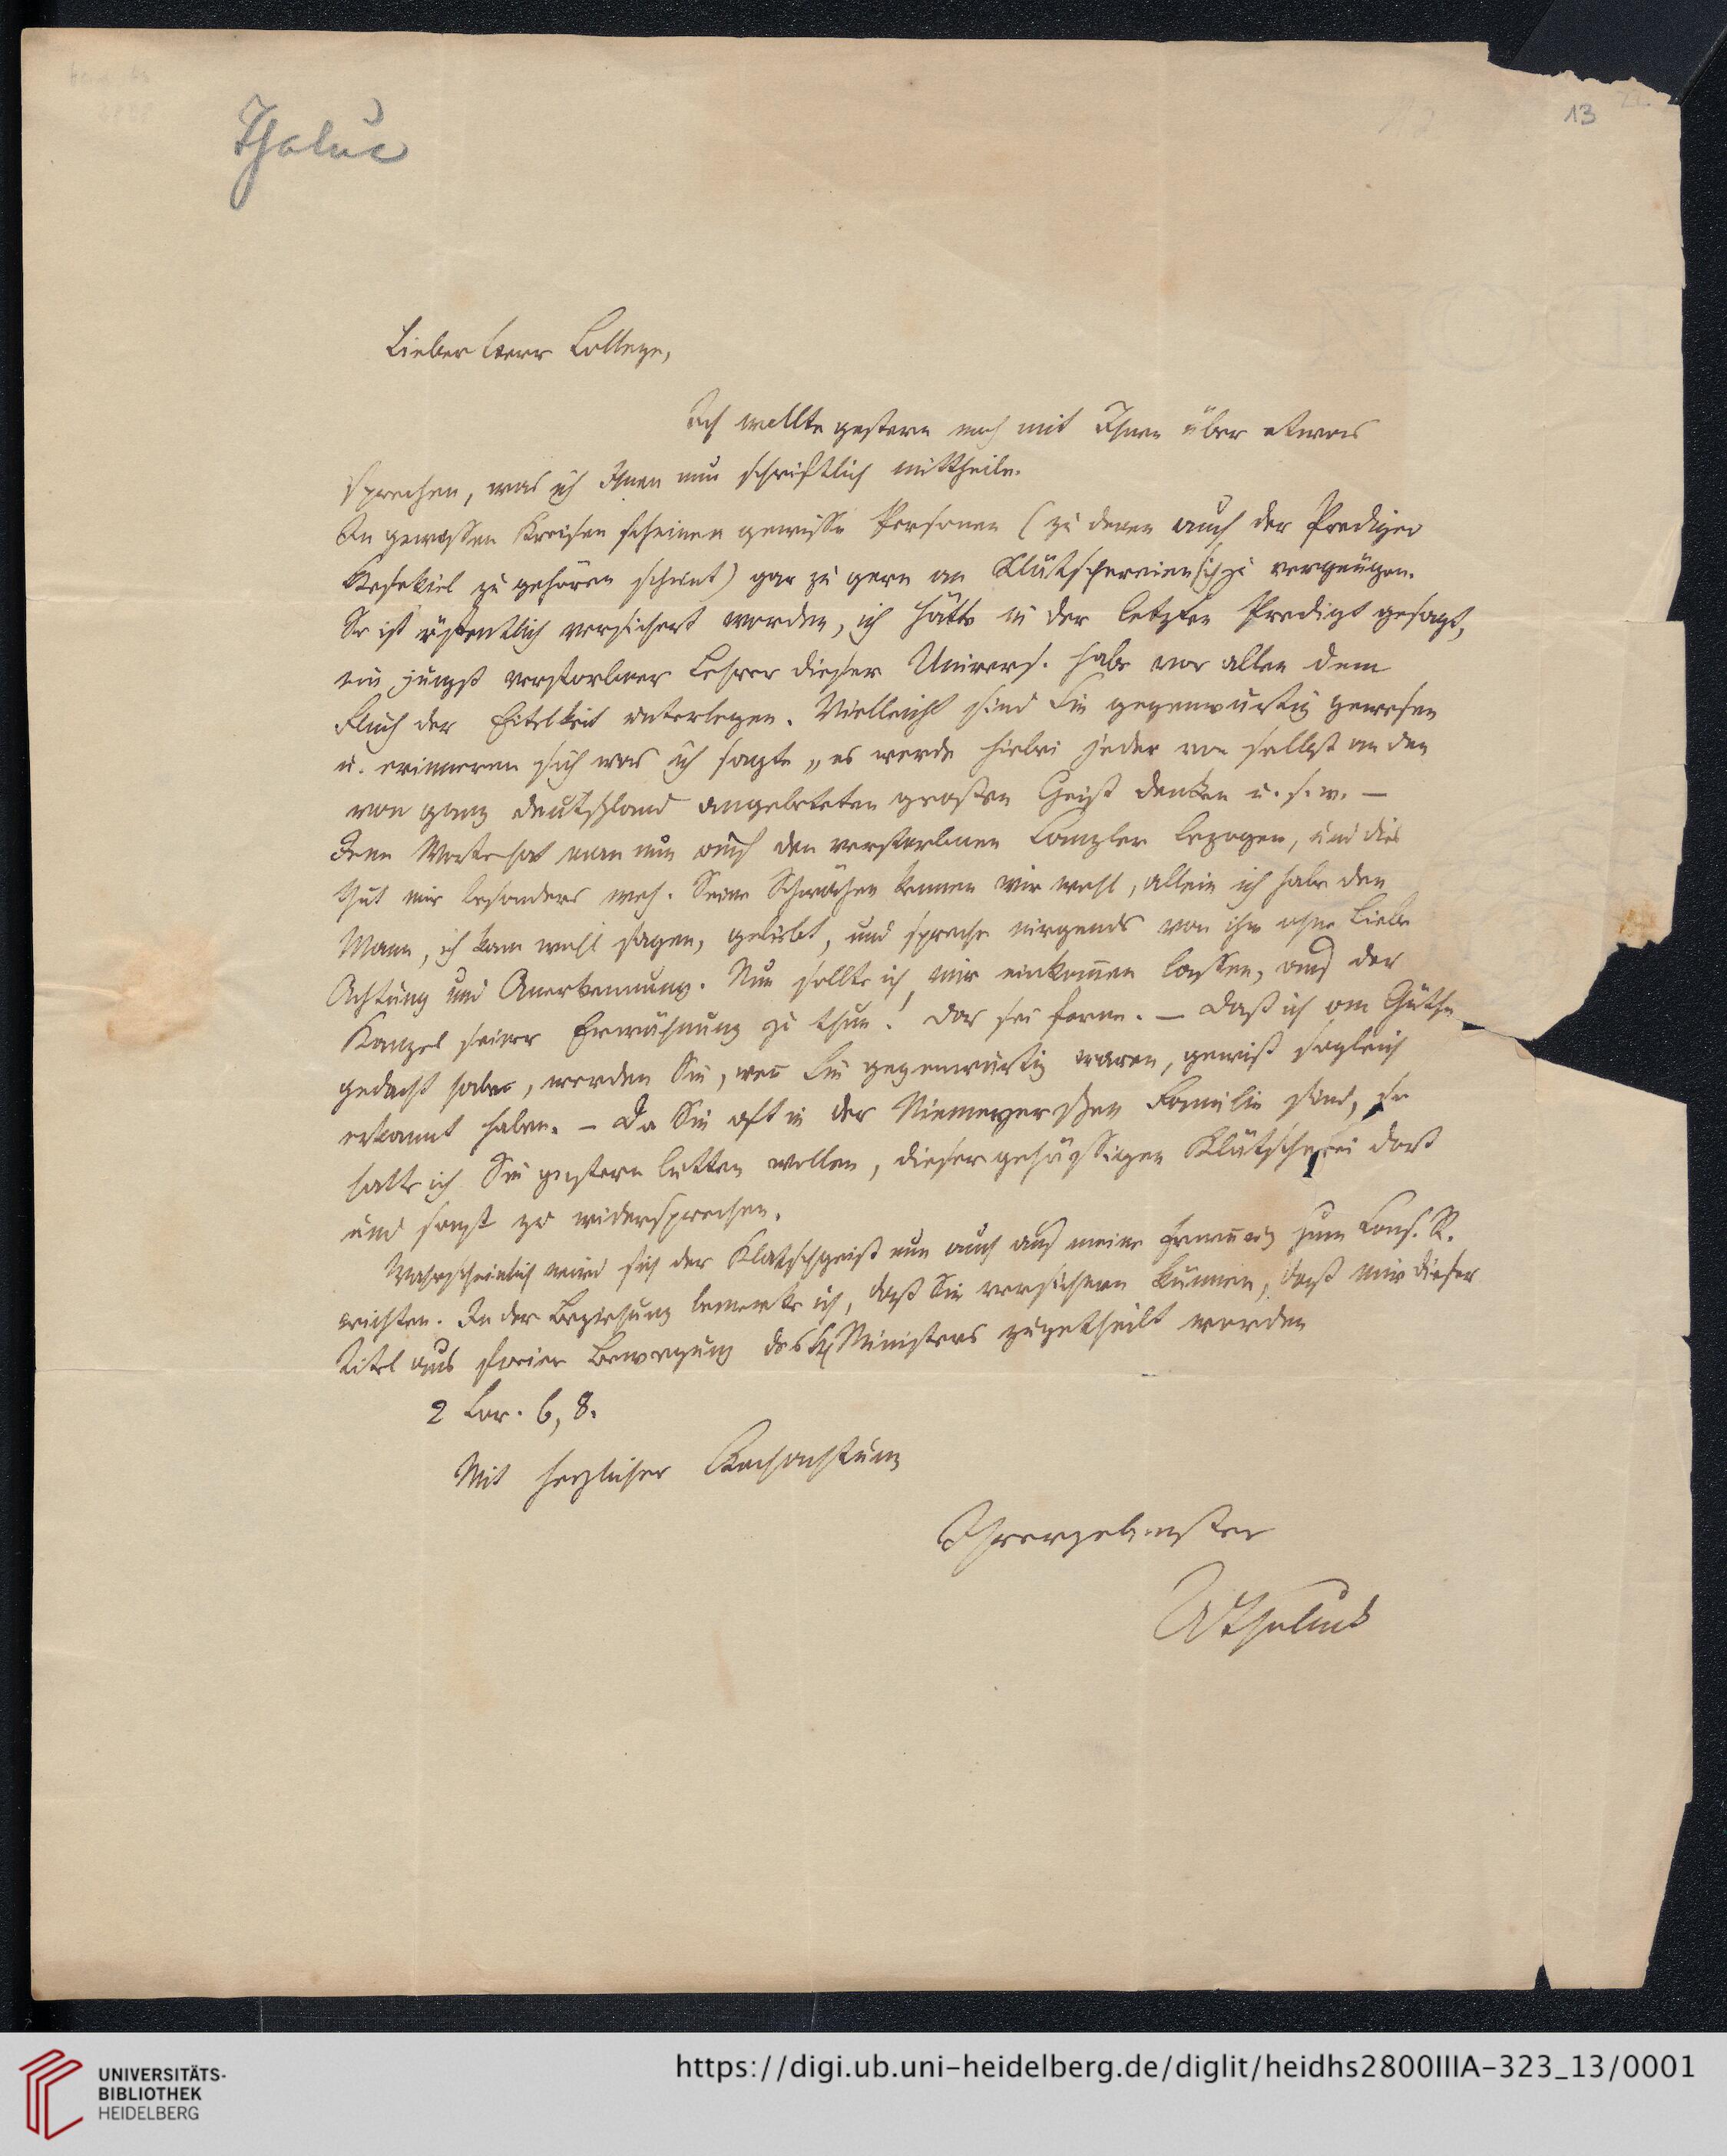 Tholuc
13
Lieber Herr College,
Ich wollte gestern noch mit Ihnen über etwas
sprechen, was ich Ihnen nun schriftlich mittheile.
In gewissen Kreisen scheinen gewisse Personen (zu denen auch der Prediger
Hesekiel zu gehören scheint) gar zu gern an Klätschereien sich zu vergnügen.
So ist öffentlich versichert worden, ich hätte in der letzten Predigt gesagt,
ein jüngst verstorbner Lehrer dieser Univers. habe vor allen dem
Fluch der Eitelkeit unterlegen. Vielleicht sind Sie gegenwärtig gewesen
u. erinneren sich was ich sagte „es werde hiebei jeder von selbst an den
von ganz Deutschland angebeteten großen Geist denken u. s. w. —
Jene Worte hat man nun auf den verstorbnen Canzler bezogen, und dies
thut mir besonders weh. Seine Schwächen kennen wir wohl, allein ich habe den
Mann, ich kann wohl sagen, geliebt, und spreche nirgends von ihm ohne Liebe
Achtung und Anerkennung. Nun sollte ich mir einkom̄en lassen, auf der
Kanzel seiner Erwähnung zu thun! das sei ferne. — Daß ich an Göthe
gedacht habe, werden Sie, wen̄ Sie gegenwärtig waren, gewiß sogleich
erkannt haben. – Da Sie oft in der Niemeyerschen Familie sind, so
hatte ich Sie gestern bitten wollen, dieser gehässigen Klätscherei dort
und sonst zu widersprechen.
Wahrscheinlich wird sich der Klatschgeist nun auch auf meine Ernen̄ung zum Cons. R.
richten. In der Beziehung bemerke ich, daß Sie versichern können, daß mir dieser
Titel aus freier Bewegung des H Ministers zugetheilt worden
2 Cor. 6, 8.
Mit herzlicher Hochachtung
Ihr ergebenster
ATholuck
UNIVERSITÄTS-
BIBLIOTHEK
HEIDELBERG
https://digi.ub.uni-heidelberg.de/diglit/heidhs2800IIIA-323_13/0001